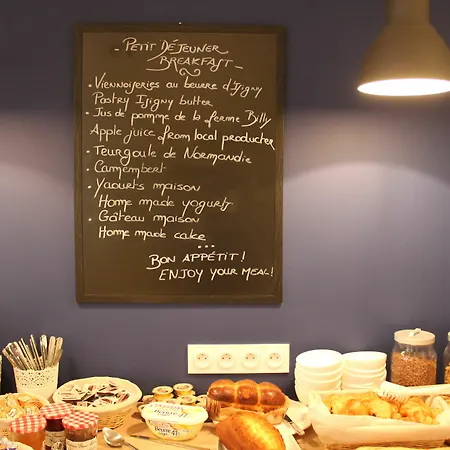 - Petit Déjeuner
Breakfast -
• Viennoiseries au beurre d'Isigny
Pastry Isigny butter
• Jus de pomme de la ferme Billy
Apple juice from local producter
• Teurgoule de Normandie
• Camembert
• Yaourts maison
Home made yogurts
• Gâteau maison
Home made cake
...
Bon appétit !
Enjoy your meal !